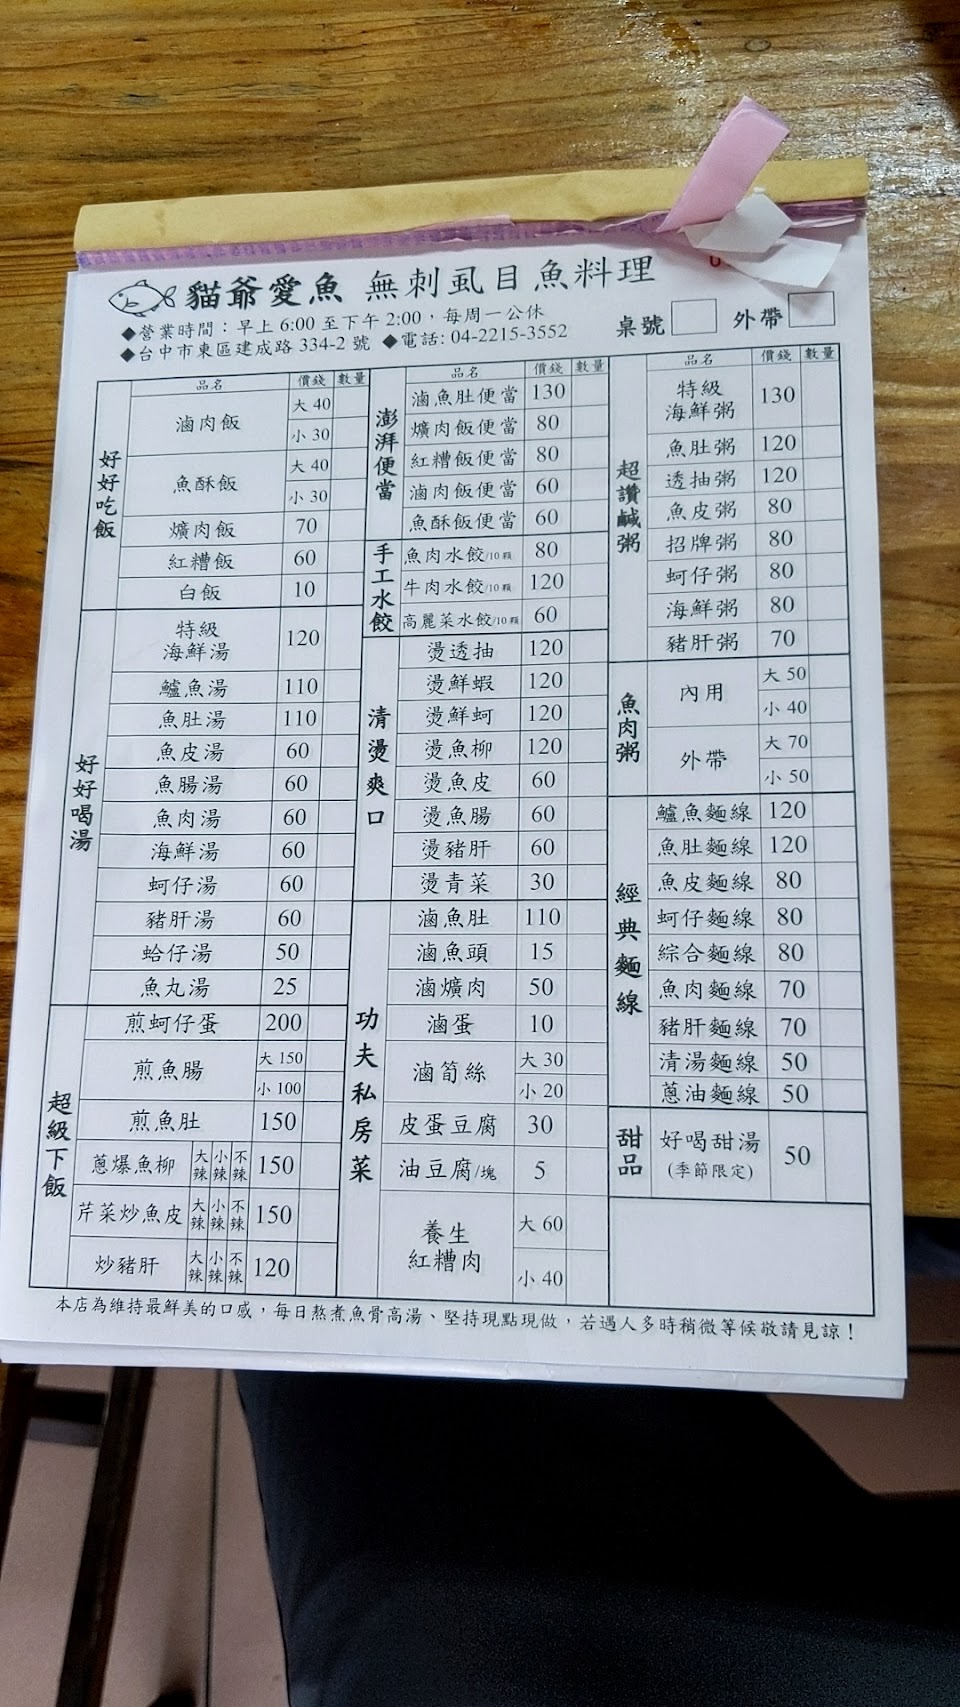 貓爺愛魚 無刺虱目魚料理
◆營業時間：早上 6:00 至下午 2:00，每周一公休
◆台中市東區建成路 334-2 號 ◆電話: 04-2215-3552
桌號 外帶
好好吃飯
品名 價錢 數量
滷肉飯 大 40
小 30
魚酥飯 大 40
小 30
爌肉飯 70
紅糟飯 60
白飯 10
好好喝湯
特級海鮮湯 120
鱸魚湯 110
魚肚湯 110
魚皮湯 60
魚腸湯 60
魚肉湯 60
海鮮湯 60
蚵仔湯 60
豬肝湯 60
蛤仔湯 50
魚丸湯 25
超級下飯
煎蚵仔蛋 200
煎魚腸 大 150
小 100
煎魚肚 150
蔥爆魚柳 大辣 小辣 不辣 150
芹菜炒魚皮 大辣 小辣 不辣 150
炒豬肝 大辣 小辣 不辣 120
澎湃便當
品名 價錢 數量
滷魚肚便當 130
爌肉飯便當 80
紅糟飯便當 80
滷肉飯便當 60
魚酥飯便當 60
手工水餃
魚肉水餃/10顆 80
牛肉水餃/10顆 120
高麗菜水餃/10顆 60
清燙爽口
燙透抽 120
燙鮮蝦 120
燙鮮蚵 120
燙魚柳 120
燙魚皮 60
燙魚腸 60
燙豬肝 60
燙青菜 30
功夫私房菜
滷魚肚 110
滷魚頭 15
滷爌肉 50
滷蛋 10
滷筍絲 大 30
小 20
皮蛋豆腐 30
油豆腐/塊 5
養生紅糟肉 大 60
小 40
超讚鹹粥
品名 價錢 數量
特級海鮮粥 130
魚肚粥 120
透抽粥 120
魚皮粥 80
招牌粥 80
蚵仔粥 80
海鮮粥 80
豬肝粥 70
魚肉粥
內用 大 50
小 40
外帶 大 70
小 50
經典麵線
鱸魚麵線 120
魚肚麵線 120
魚皮麵線 80
蚵仔麵線 80
綜合麵線 80
魚肉麵線 70
豬肝麵線 70
清湯麵線 50
蔥油麵線 50
甜品
好喝甜湯 50
(季節限定)
本店為維持最鮮美的口感，每日熬煮魚骨高湯、堅持現點現做，若遇人多時稍微等候敬請見諒！